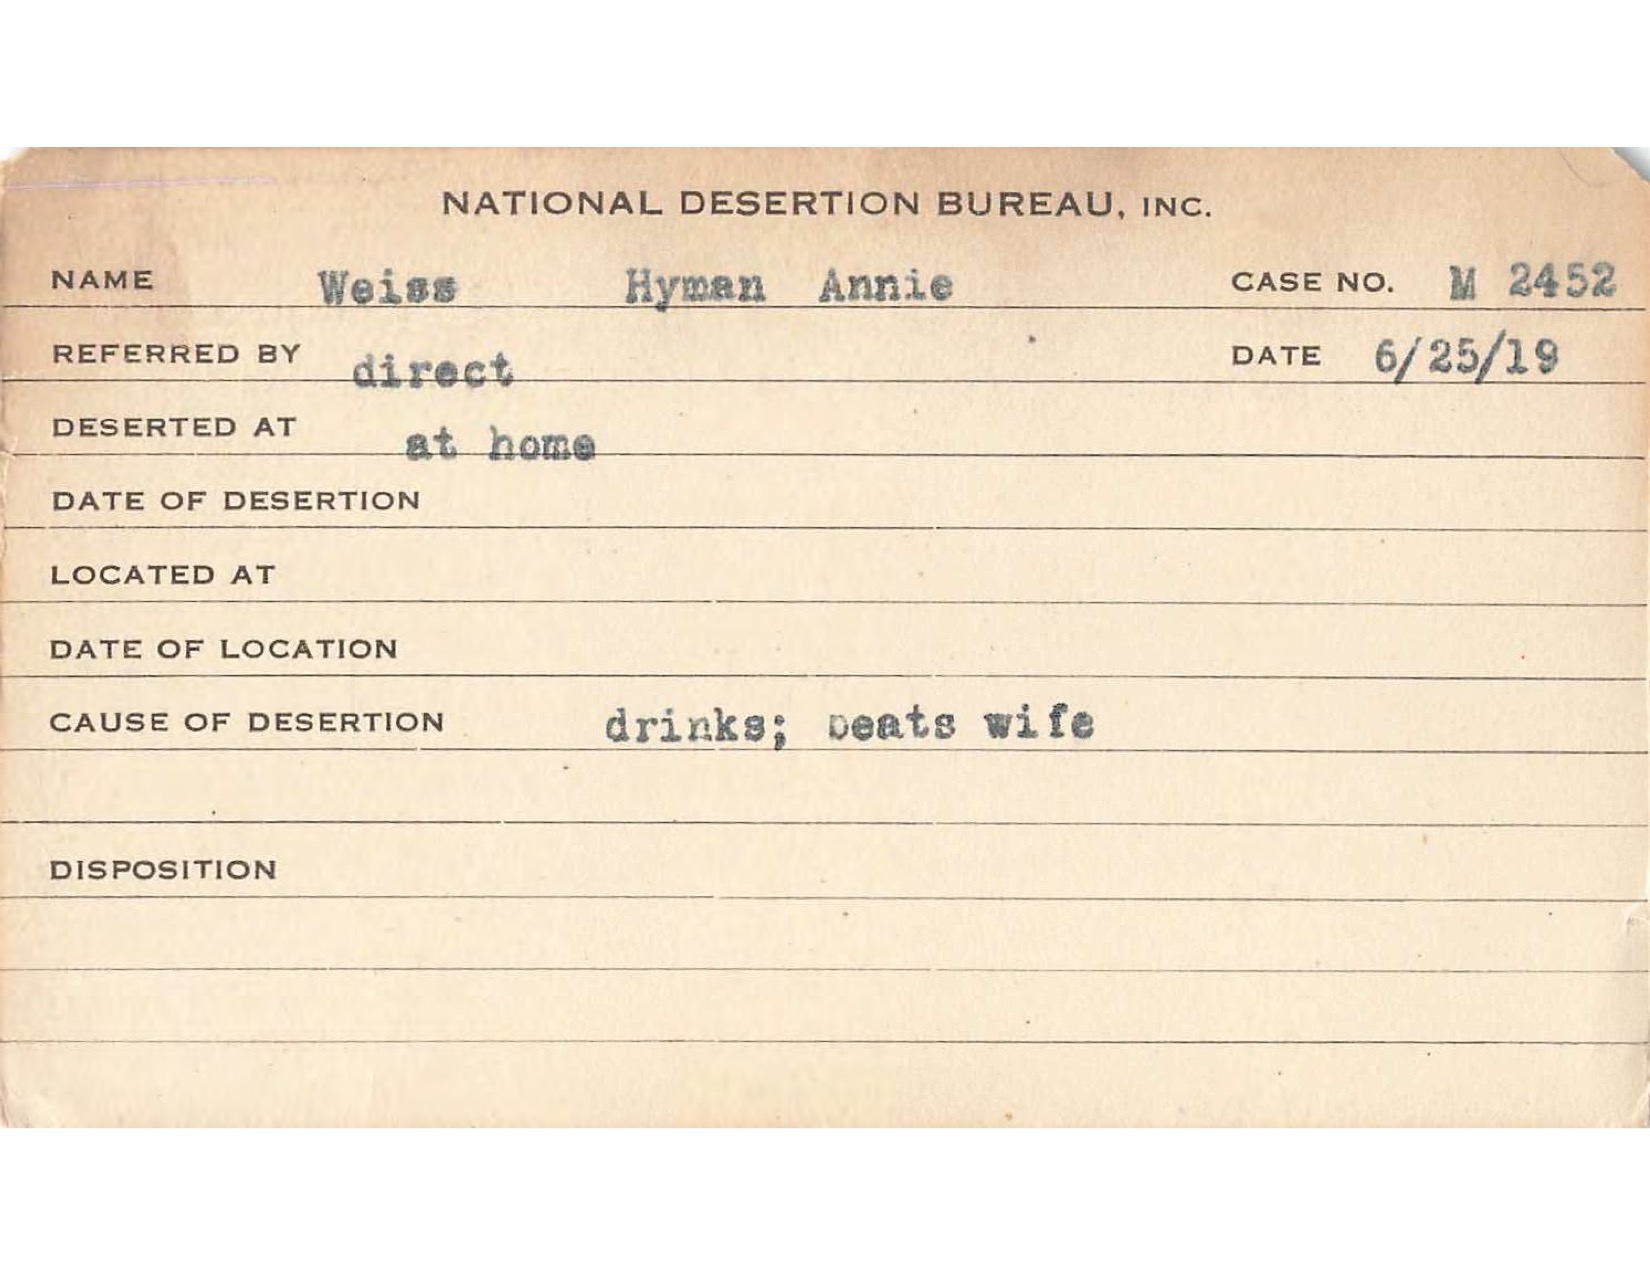 NATIONAL DESERTION BUREAU, INC.
NAME Weiss Hyman Annie CASE NO. M 2452
REFERRED BY direct DATE 6/25/19
DESERTED AT at home
DATE OF DESERTION
LOCATED AT
DATE OF LOCATION
CAUSE OF DESERTION drinks; beats wife
DISPOSITION